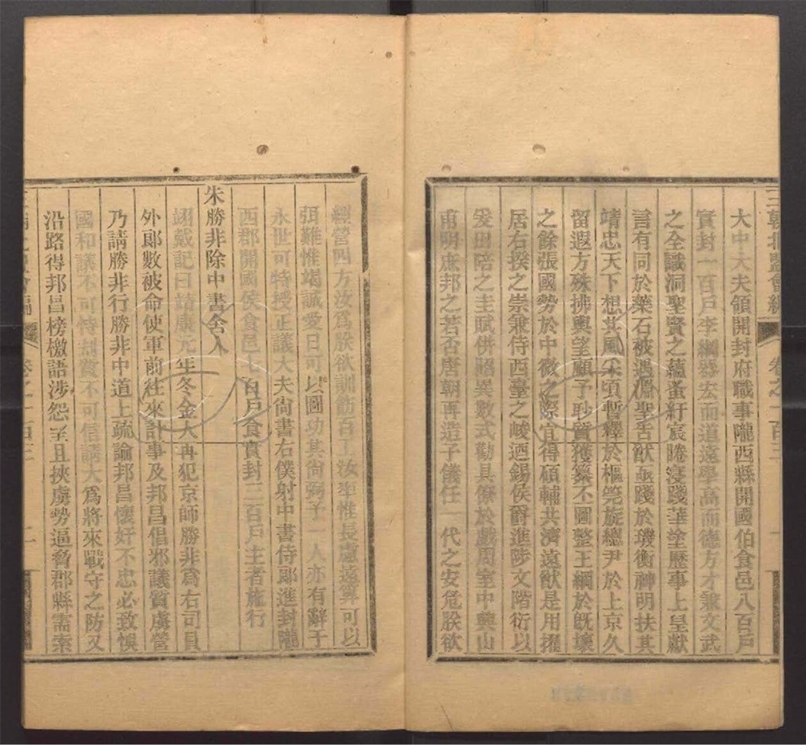 三朝北盟會編 卷之一百三 一
大中大夫領開封府職事隴西縣開國伯食邑八百戶
實封一百戶李綱器宏而道遠學高而德方才兼文武
之全識洞聖賢之蘊蚤紆宸睠寖踐華塗歷事上皇獻
言有同於藥石被遇淵聖告猷亟踐於璣衡神明扶其
靖忠天下想其風采頃暫釋於樞筦旋總尹於上京久
留遐方殊拂輿望顧予眇質獲纂丕圖整王綱於既壞
之餘張國勢於中微之際宜得碩輔共濟遠猷是用擢
居右揆之崇兼侍西臺之峻迺錫侯爵進陟文階衍以
爰田陪之圭賦併昭異數式勸具僚於戲周室中興山
甫明庶邦之若否唐朝再造子儀任一代之安危朕欲
經營四方汝為朕欲訓飭百工汝率惟長慮遠筭可以
弭難惟竭誠愛日可以圖功其尚弼予一人亦有辭于
永世可特授正議大夫尚書右僕射中書侍郎進封隴
西郡開國侯食邑七百戶食實封二百戶主者施行
朱勝非除中書舍人
翊戴記曰靖康元年冬金人再犯京師勝非為右司員
外郎數被命使軍前往來計事及邦昌倡邪議質虜營
乃請勝非行勝非中道上疏論邦昌懷奸不忠必致悞
國和議不可恃割賞不可信請大為將來戰守之防又
沿路得邦昌榜檄語涉怨望且挾虜勢逼脅郡縣需索
三朝北盟會編 卷之一百三 二